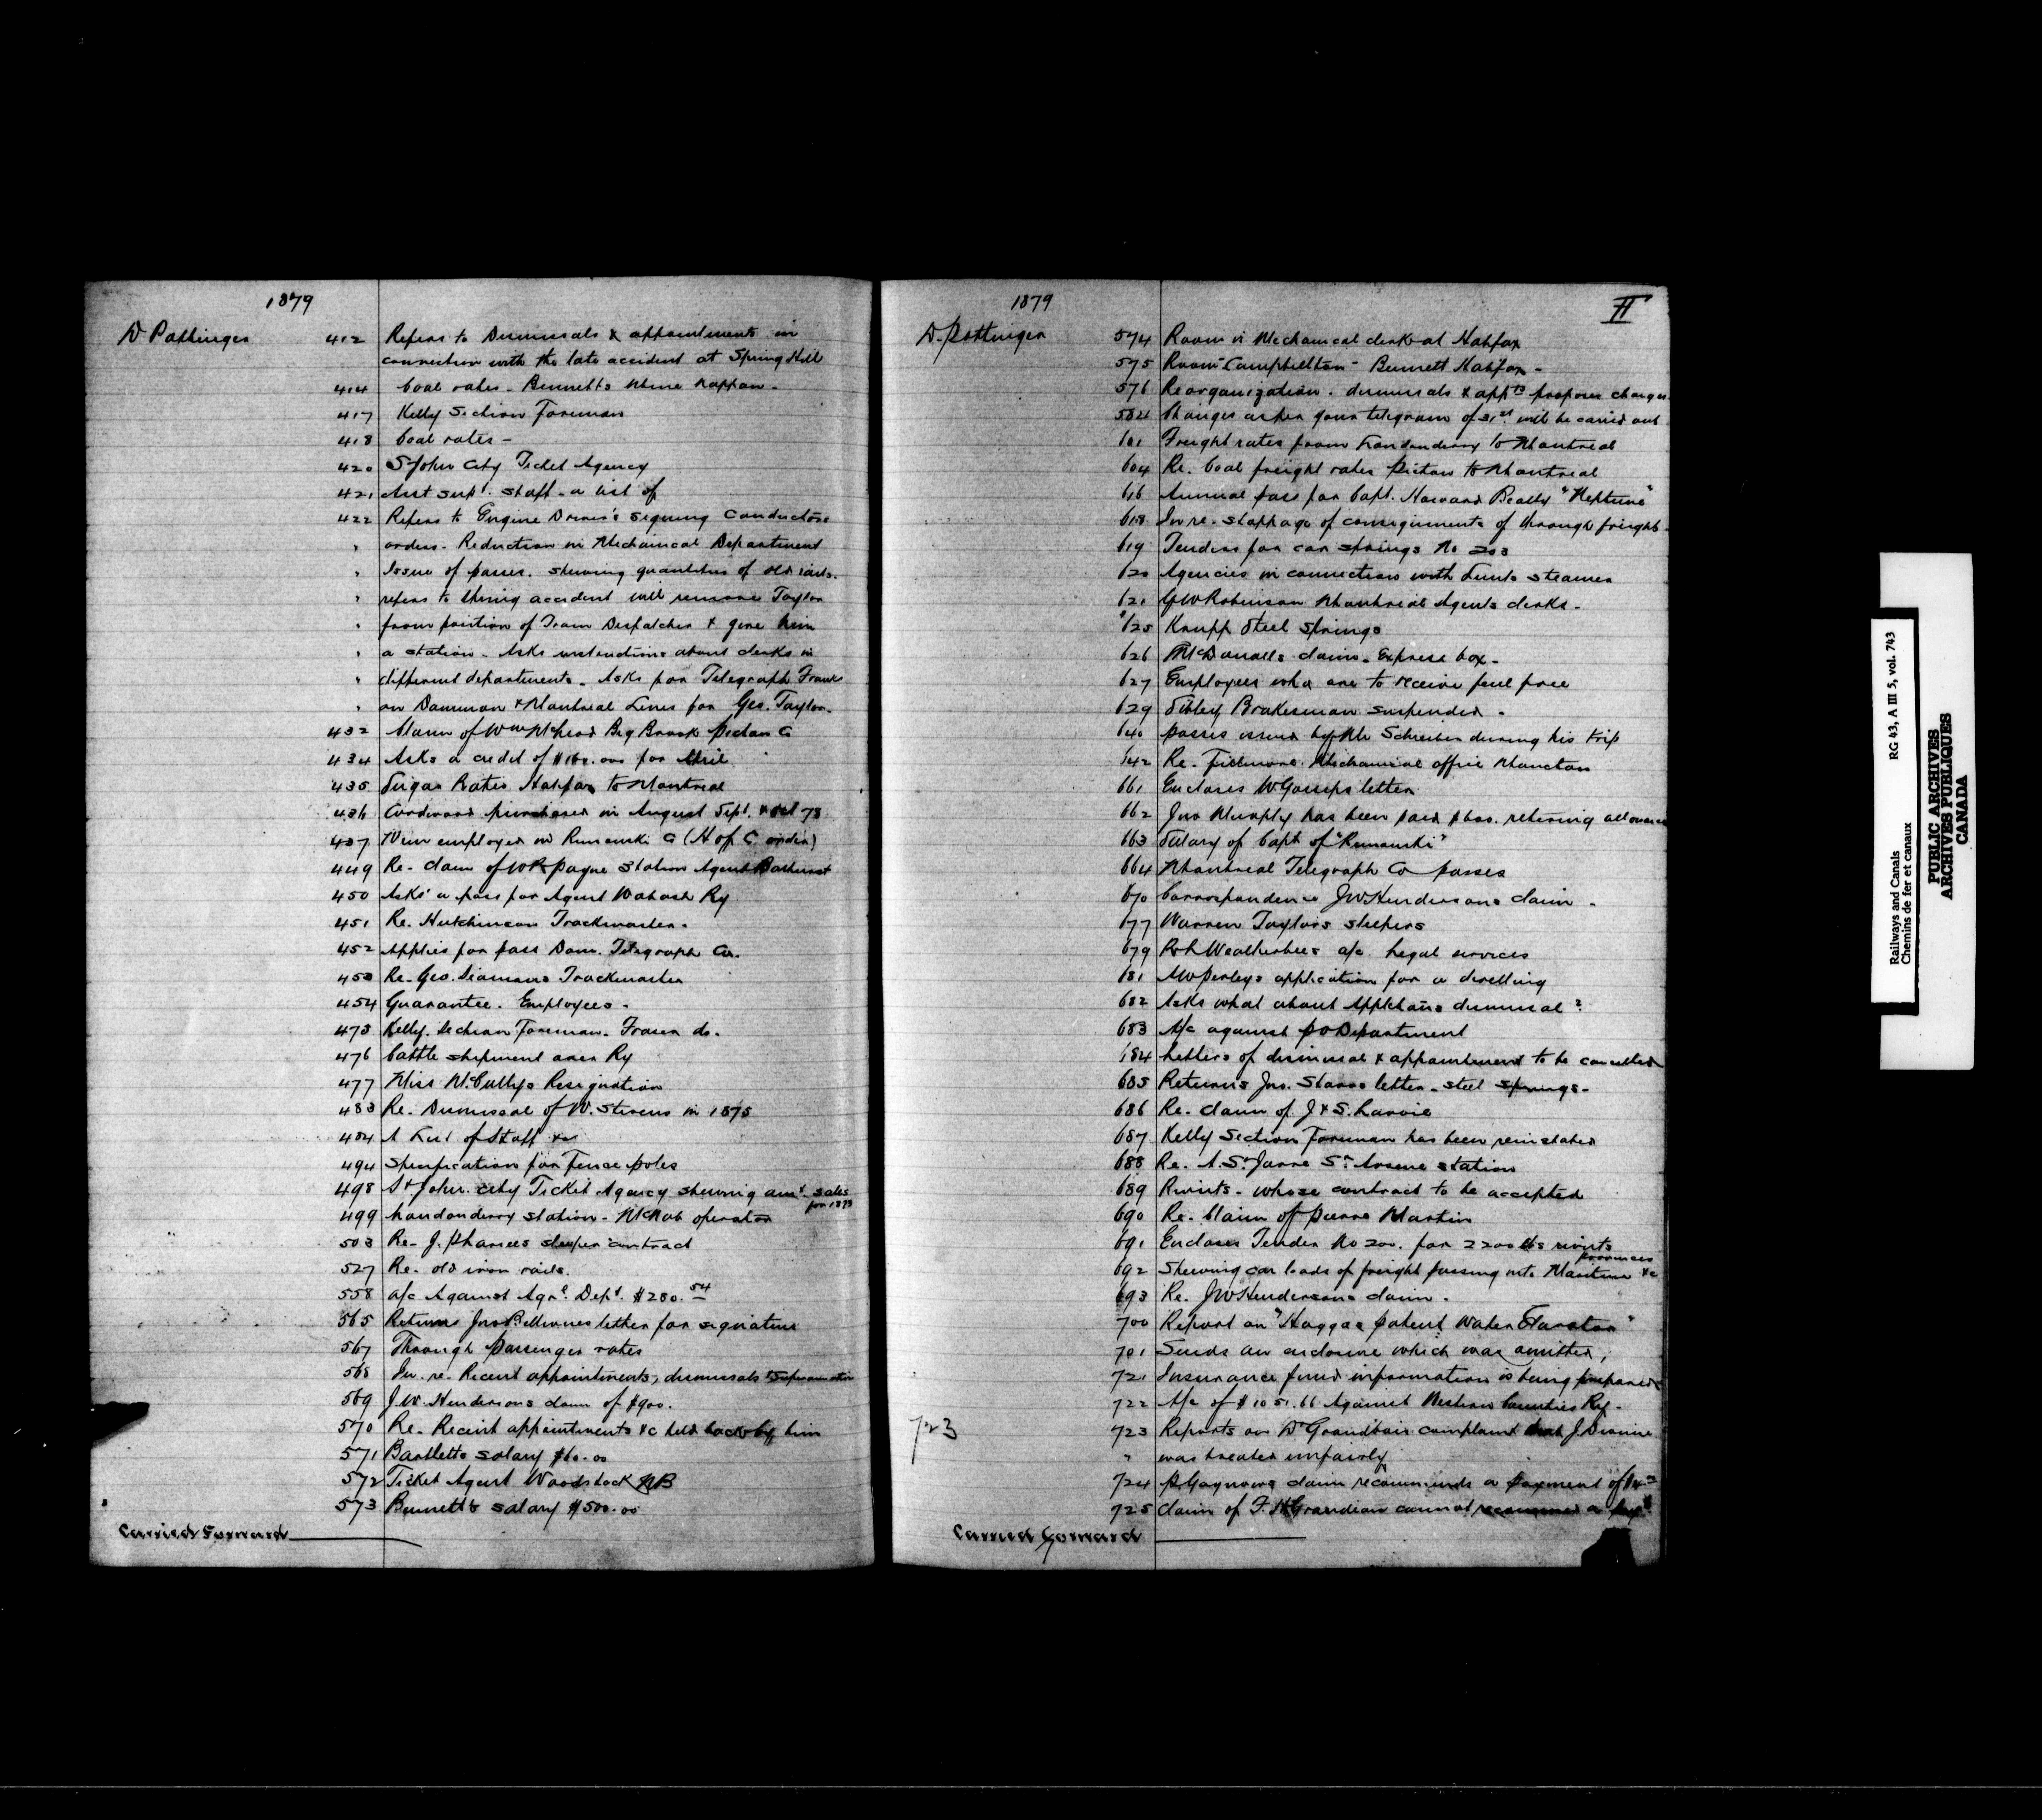 1879
D Pottinger 412 Refers to Dismissals & appointments in
connection with the late accident at Spring Hill
414 Coal rates - Bennetts Mine Nappan -
417 Kelly Section Foreman
418 Coal rates -
420 St John City Ticket Agency
421 Asst supt. staff - a list of
422 Refers to Engine Driver's signing Conductors
" orders. Reduction in Mechanical Department
" Issue of passes. shewing quantities of old rails.
" refers to accident will remove Taylor
" from position of Train Despatcher & give him
" a station - Asks instructions about clerks in
" different departments. Asks for Telegraph Franks
" on Dominion & Montreal Lines for Geo. Taylor.
432 Claim of Wm McLeod Big Brook Pictou Co
434 Asks a credit of $160.000 for April
435 Sugar Rates Halifax to Montreal
436 Cordwood purchased in August Sept. & Oct 78
437 Men employed in Rimouski Co (H of C order)
449 Re- claim of W R Payne Station Agent Bathurst
450 Asks a pass for Agent Wabash Ry
451 Re. Hutchinson Trackmaster.
452 Applies for pass Dom. Telegraph Co.
453 Re- Geo. Trackmaster
454 Guarantee. Employees -
473 Kelly. Section Foreman. Fraser do.
476 Cattle shipment over Ry
477 Miss McCullys Resignation
483 Re. Dismissal of W. Stevens in 1875
484 A List of Staff &c
494 Specification for Fence poles
498 St John. City Ticket Agency shewing amt. sales
for 1878
499 Londonderry station - McNab operator
503 Re- J. sleeper contract
527 Re- old iron rails.
558 a/c Against Agrl. Dept. $280.54
565 Returns Jno letter for signature
567 Through passenger rates
568 In. re- Recent appointments, dismissals & Superannuation
569 J.W. Hendersons claim of $900.
570 Re- Recent appointments &c held back by him
571 Bartletts salary $60.00
572 Ticket Agent Woodstock NB
573 Bennetts salary $500.00
Carried Forward
1879 II
D Pottinger 574 Room in Mechanical clerk at Halifax
575 Room - Campbellton - Bennett Halifax -
576 Reorganization. dismissals & appts proposes changes
584 Changes as per your telegram of 31st will be carried out
601 Freight rates from Londonderry to Montreal
604 Re. Coal freight rates Pictou to Montreal
616 Annual pass for Capt. Howard Beatty "Neptune"
618 In re- stoppage of consignments of through freight
619 Tenders for car springs No 203
620 Agencies in connection with steamer
621 G W Robinson Montreal Agents clerks -
625 Krupp Steel Springs
626 McDonalls claim - Express box -
627 Employees who are to receive fuel free
629 Sibley Brakesman suspended -
640 Passes issued by Mr Schreiber during his trip
642 Re- Fillmore. Mechanical office Moncton
661 Encloses W Gossips letter
662 Jno Murphy has been paid $600. retiring allowance
663 Salary of Capt of "Rimouski"
664 Montreal Telegraph Co passes
670 Correspondence J W Hendersons claim -
677 Warren Taylors sleepers
679 Weatherbees a/c legal services
681 Perleys application for a dwelling
682 Asks what about Appletons dismissal?
683 A/c against P O Department
684 Letters of dismissal & appointment to be cancelled
685 Returns Jno. Starrs letter - steel springs -
686 Re- claim of J & S.
687 Kelly Section Foreman has been reinstated
688 Re. A. St. Jarre St. Arsene station
689 Rivets - whose contract to be accepted
690 Re- Claim of Pierre Martin
691 Encloses Tender No 200. for 2200 lbs rivets
692 Shewing car loads of freight passing into Maritime provinces &c
693 Re. J W Hendersons claim -
700 Report on "Haggas patent Water Elevator"
701 Sends an enclosure which was omitted,
721 Insurance fund information is being prepared
722 A/c of $1051.66 Against Western Counties Ry -
723 723 Reports on D Grandbois complaint that J
" was treated unfairly
724 claim recommends a payment of
725 Claim of F. cannot recommend a
Carried Forward
Railways and Canals RG 43, A III 5, vol. 743
Chemins de fer et canaux
PUBLIC ARCHIVES
ARCHIVES PUBLIQUES
CANADA